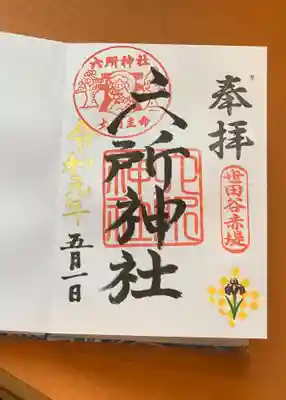 奉拝
世田谷赤堤
六所神社
六所神社
大国主命
令和元年
五月一日